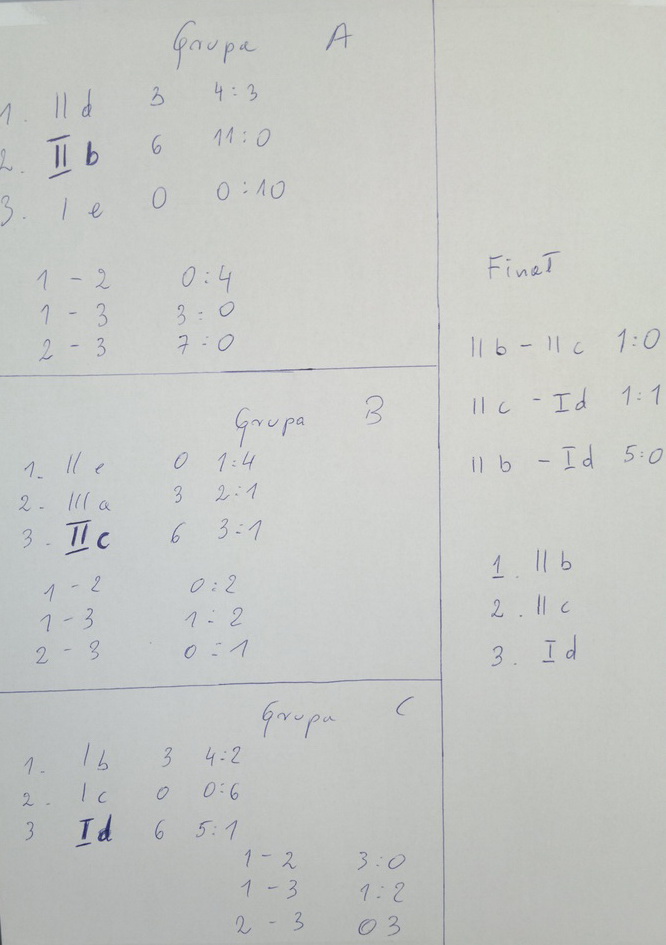 Grupa A
1. II d 3 4:3
2. II b 6 11:0
3. I e 0 0:10
1 - 2 0:4
1 - 3 3:0
2 - 3 7:0
Grupa B
1. II e 0 1:4
2. III a 3 2:1
3. II c 6 3:1
1 - 2 0:2
1 - 3 1:2
2 - 3 0:1
Grupa C
1. I b 3 4:2
2. I c 0 0:6
3 I d 6 5:1
1 - 2 3:0
1 - 3 1:2
2 - 3 0 3
Finał
II b - II c 1:0
II c - I d 1:1
II b - I d 5:0
1. II b
2. II c
3. I d